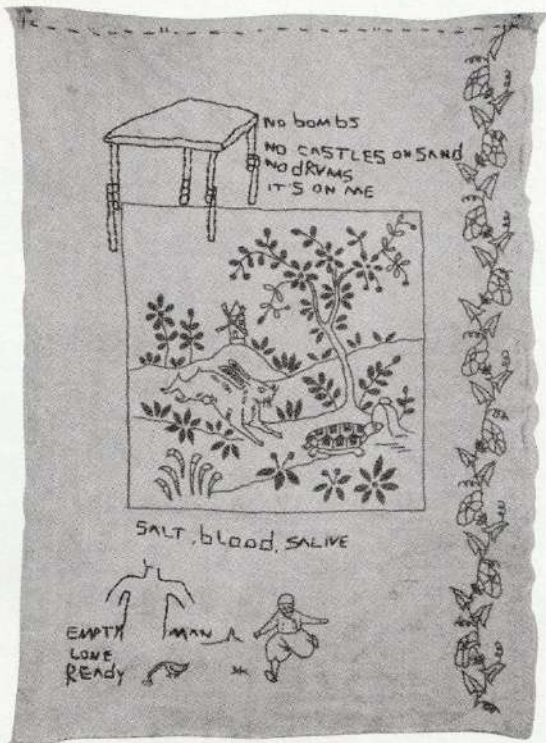 No bombs
NO CASTLES ON SAND
NO dRUMS
IT'S ON ME
SALT, blood, SALIVE
EMPTY MAN
LONE
READY